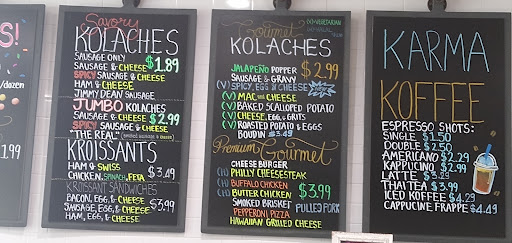 S!
/dozen
1.99
Savory
KOLACHES
SAUSAGE ONLY
SAUSAGE & CHEESE $1.89
SPICY SAUSAGE & CHEESE
HAM & CHEESE
JIMMY DEAN SAUSAGE
JUMBO KOLACHES
SAUSAGE & CHEESE $2.99
SPICY SAUSAGE & CHEESE
"THE REAL"
KROISSANTS
HAM & SWISS $3.49
CHICKEN, SPINACH, FETA
KROISSANT SANDWICHES
BACON, EGG, & CHEESE
SAUSAGE, EGG, & CHEESE $3.99
HAM, EGG, & CHEESE
Gourmet
(V)=VEGETARIAN
KOLACHES
JALAPEÑO POPPER $2.99
SAUSAGE & GRAVY
(V) SPICY, EGG & CHEESE
(V) MAC AND CHEESE
(V) BAKED SCALLOPED POTATO
(V) CHEESE, EGG, & GRITS
(V) ROASTED POTATO & EGGS
BOUDIN $3.49
Premium Gourmet
CHEESE BURGER
(H) PHILLY CHEESESTEAK
(H) BUFFALO CHICKEN $3.99
(H) BUTTER CHICKEN
SMOKED BRISKET PULLED PORK
PEPPERONI PIZZA
HAWAIIAN GRILLED CHEESE
KARMA
KOFFEE
ESPRESSO SHOTS:
SINGLE $1.50
DOUBLE $2.50
AMERICANO $2.29
KAPPUCINO $2.99
LATTE $3.29
THAI TEA $3.99
ICED KOFFEE $4.29
CAPPUCINE FRAPPE $4.49